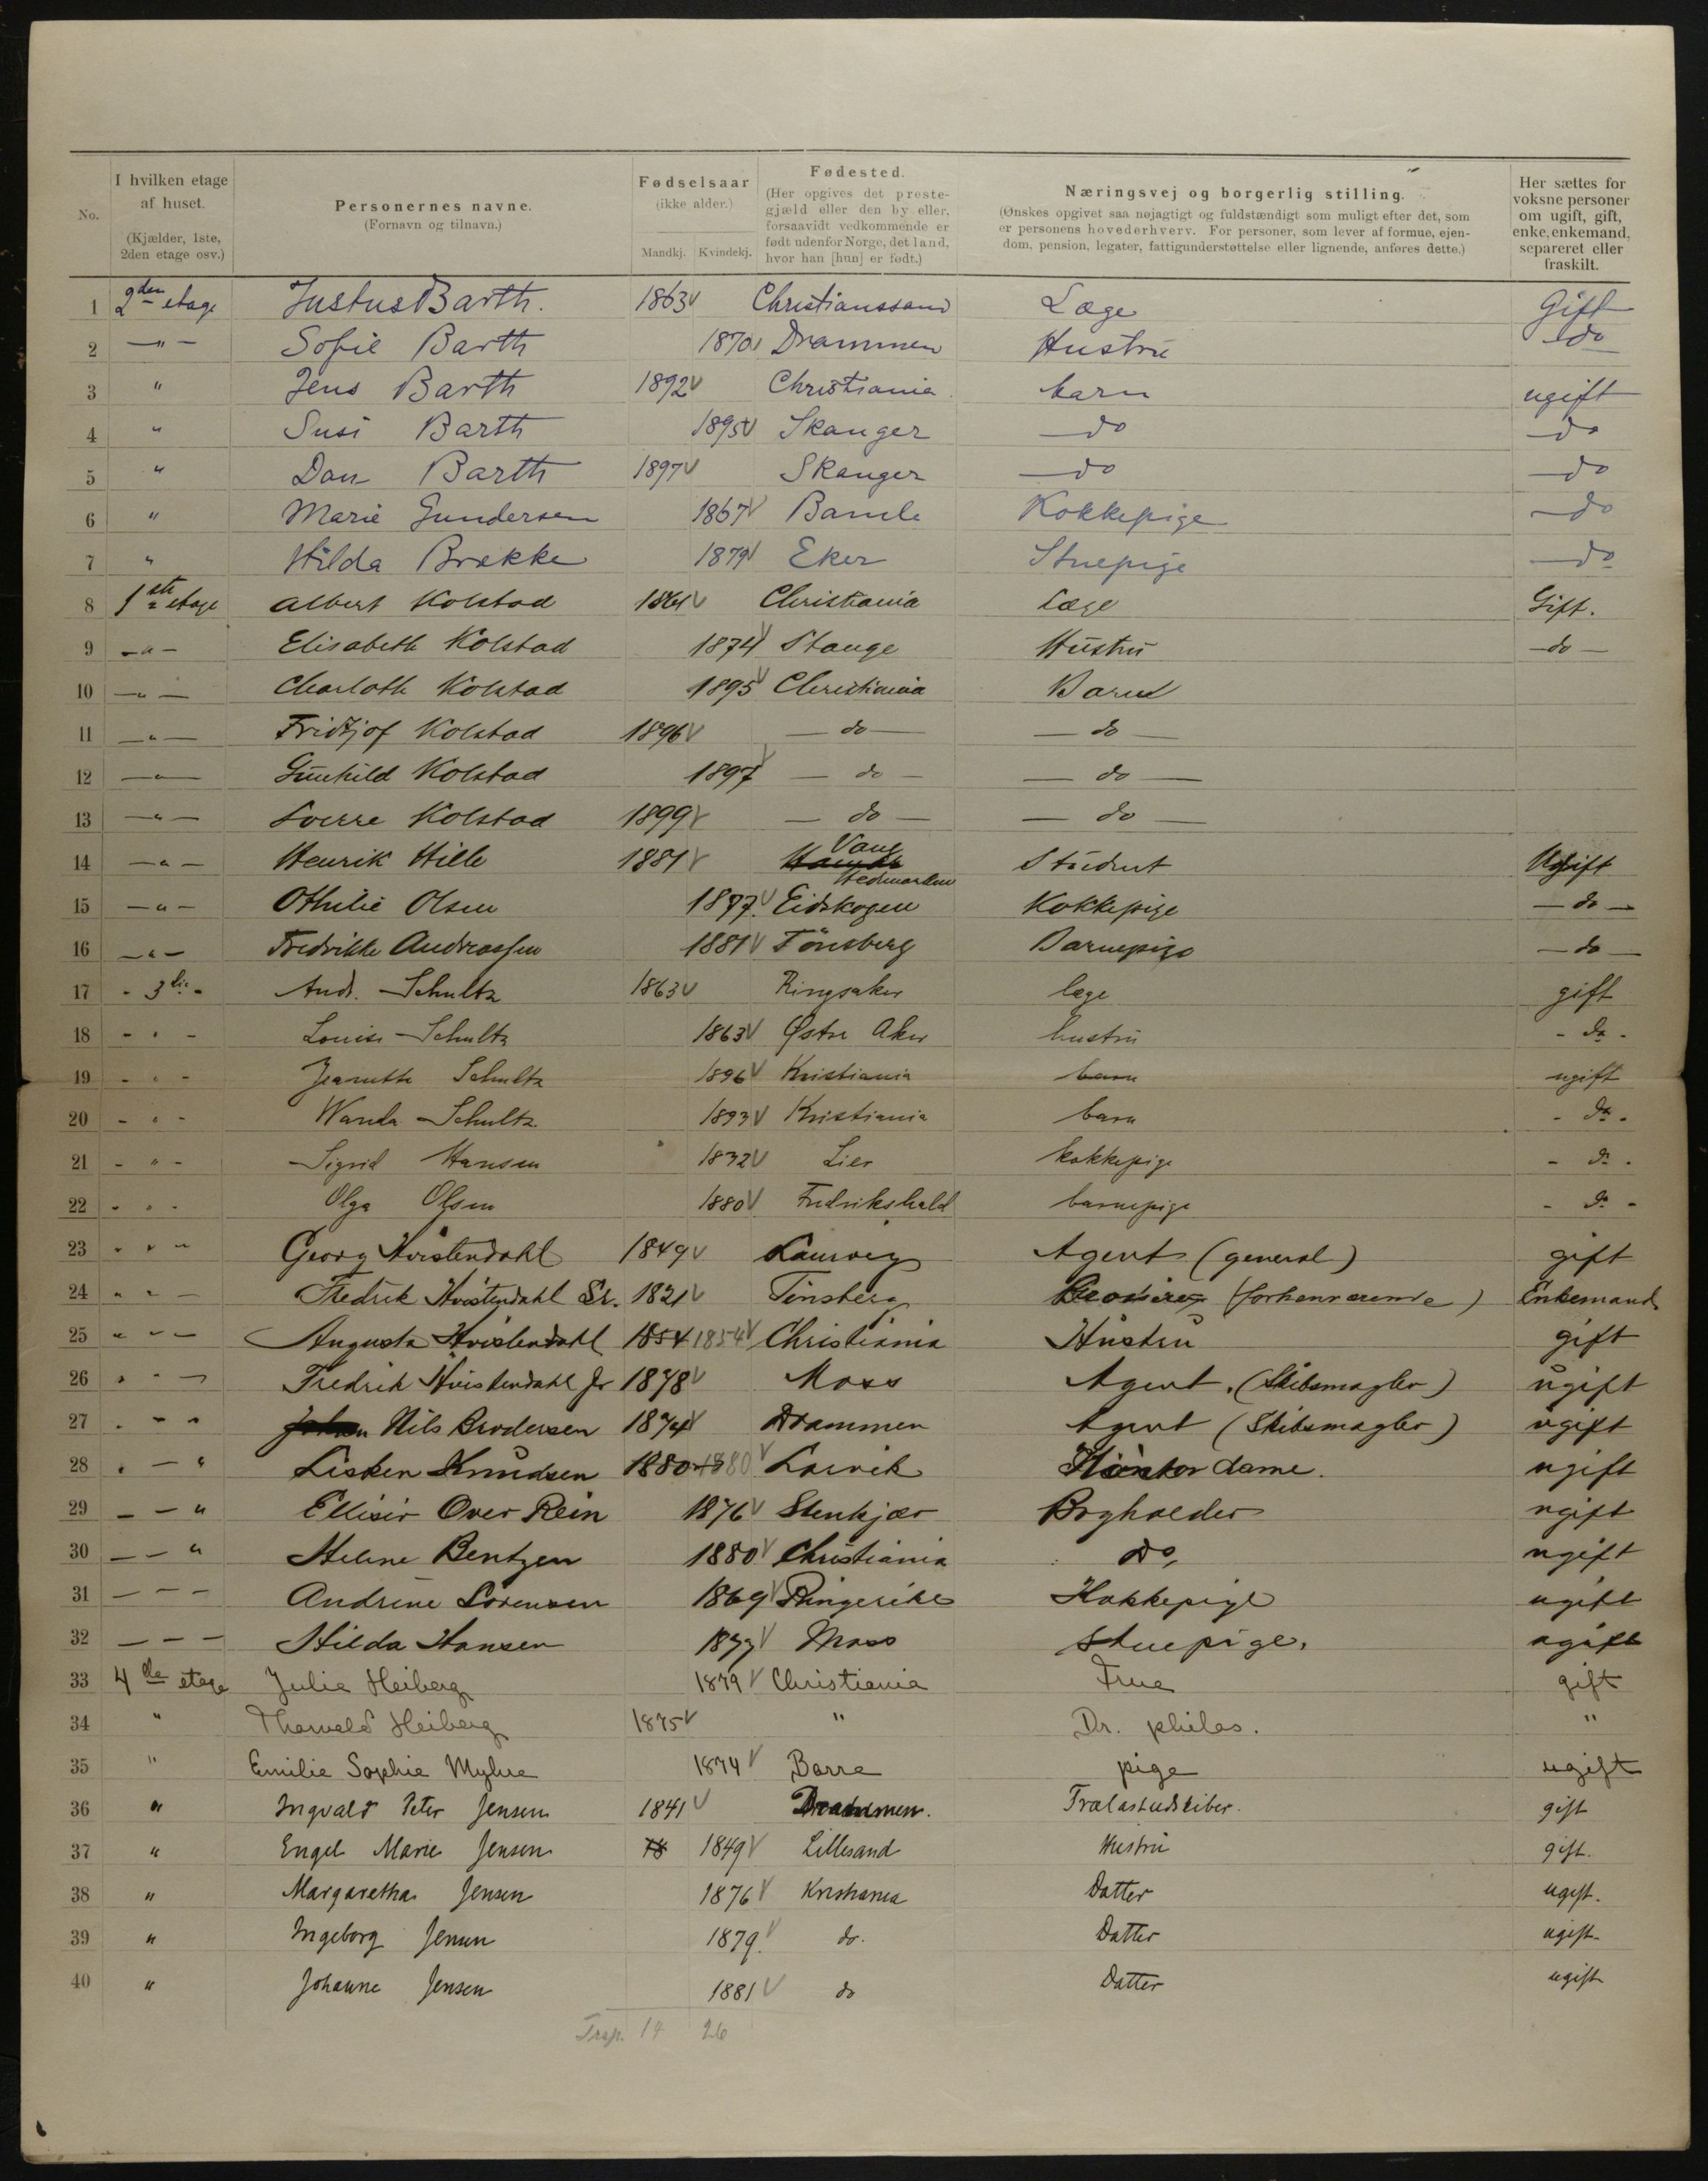 No.
I hvilken etage af huset. (Kjælder, 1ste, 2den etage osv.)
Personernes navne. (Fornavn og tilnavn.)
Fødselsaar (ikke alder.) Mandkj. Kvindekj.
Fødested. (Her opgives det prestegjæld eller den by eller, forsaavidt vedkommende er født udenfor Norge, det land, hvor han [hun] er født.)
Næringsvej og borgerlig stilling. (Ønskes opgivet saa nøjagtigt og fuldstændigt som muligt efter det, som er personens hovederhverv. For personer, som lever af formue, ejendom, pension, legater, fattigunderstøttelse eller lignende, anføres dette.)
Her sættes for voksne personer om ugift, gift, enke, enkemand, separeret eller fraskilt.
1 2den etage Justus Barth. 1863 Christianssand Læge Gift
2 — " — Sofie Barth 1870 Drammen Hustru do
3 " Jens Barth 1892 Christiania barn ugift
4 " Susi Barth 1895 Skauger do do
5 " Dan Barth 1897 Skauger do do
6 " Marie Gundersen 1867 Bamle Kokkepige do
7 " Hilda Brekke 1879 Eker Stuepige do
8 1ste etage Albert Kolstad 1861 Christiania Læge Gift.
9 — " — Elisabeth Kolstad 1874 Stange Hustru — do —
10 — " — Charloth Kolstad 1895 Christiania Barn
11 — " — Fridtjof Kolstad 1896 — do — — do —
12 — " — Gunhild Kolstad 1897 — do — — do —
13 — " — Sverre Kolstad 1899 — do — — do —
14 — " — Henrik Hille 1881 Vang Hedmarken Student Ugift
15 — " — Othilie Olsen 1877. Eidskogen Kokkepige — do —
16 — " — Fredrikke Andreassen 1881 Tönsberg Barnepige — do —
17 - 3die - And. Schultz 1863 Ringsaker læge gift
18 - " - Louise Schultz 1863 Østre Aker hustru - do -
19 - " - Jeanette Schultz 1896 Kristiania barn ugift
20 - " - Wanda Schultz 1893 Kristiania barn - do -
21 - " - Sigrid Hansen Lier kokkepige - do -
22 - " - Olga Olsen 1880 Fredrikshald barnepige - do -
23 " " " Georg Hvistendahl 1849 Laurvig Agent (general) gift
24 " " — Fredrik Hvistendahl Sr. 1821 Tönsberg (forhenværende) Enkemand
25 " " — Augusta Hvistendahl 1854 1854 Christiania Hustru gift
26 " " — Fredrik Hvistendahl Jr 1878 Moss Agent. (Skibsmægler) ugift
27 " " " Nils Brodersen 1874 Drammen Agent (Skibsmægler) ugift
28 " — " Lisken Knudsen 1880 1880 Larvik Kontor dame. ugift
29 — — " Ellisir Over Rein 1876 Stenkjær Bogholder ugift
30 — — " Helene Bentzen 1880 Christiania do, ugift
31 — — — Andrine Sörensen 1869 Ringerike Kokkepige ugift
32 — — — Hilda Hansen 1877 Moss Stuepige. ugift
33 4de etage Julie Heiberg 1879 Christiania Frue gift
34 " Thorvald Heiberg 1875 " Dr. philos. "
35 " Emilie Sophie Myhre 1874 Borre pige ugift
36 " Ingvald Peter Jensen 1841 Drammen. Trælastudskiber. gift
37 " Engel Marie Jensen 18 1849 Lillesand Hustru gift.
38 " Margaretha Jensen 1876 Kristiania Datter ugift.
39 " Ingeborg Jensen 1879. do. Datter ugift
40 " Johanne Jensen 1881 do Datter ugift
Trsp. 14 26